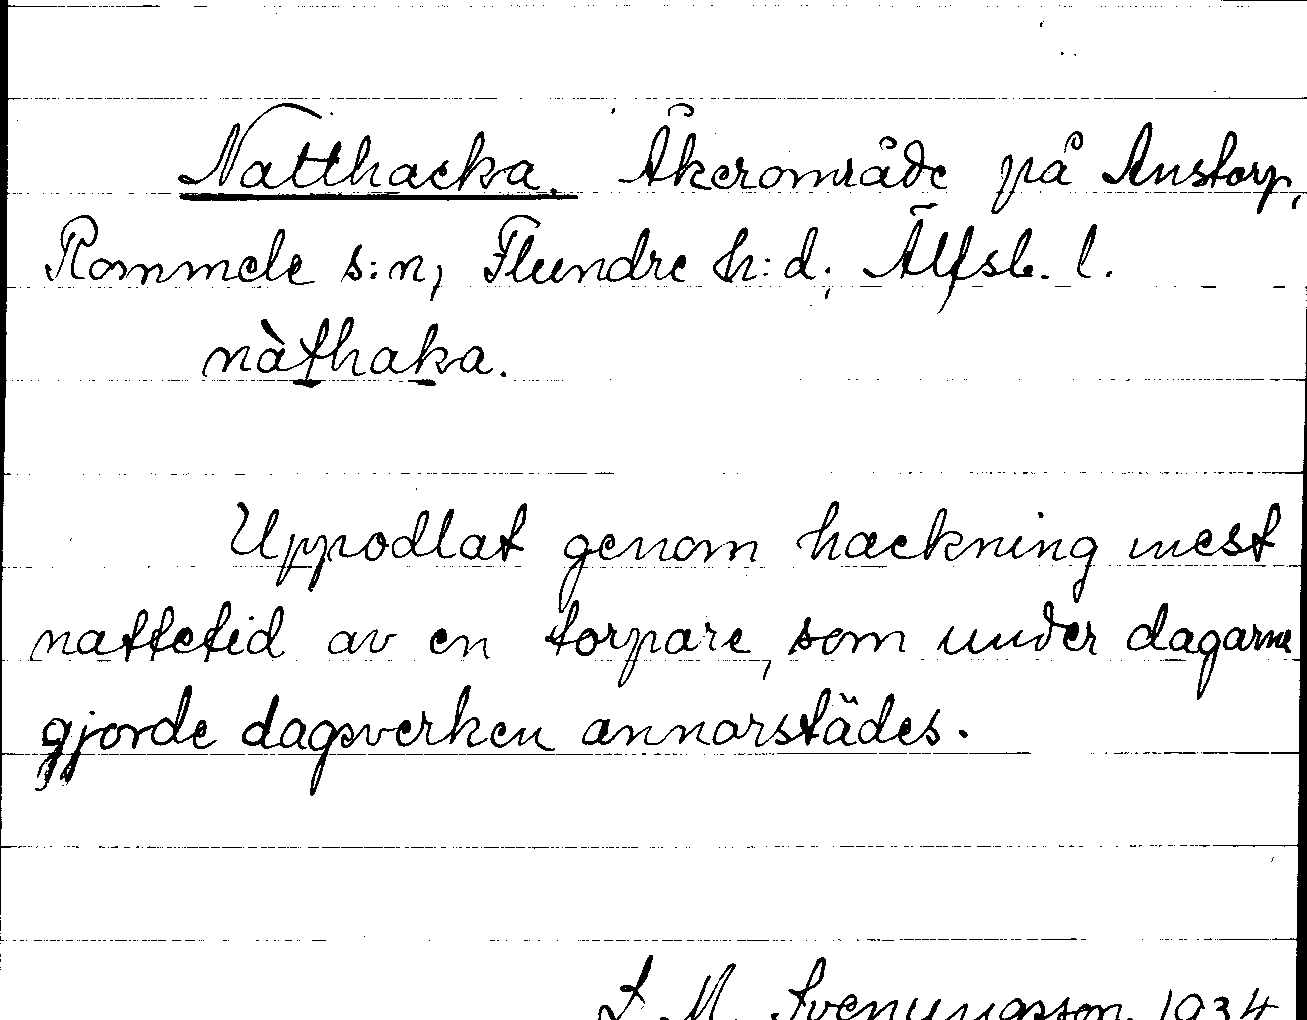 Natthacka. Åkerområde på Anstorp,
Rommele s:n, Flundre h:d, Älfsb. l.
nàthaka.
Uppodlat genom hackning mest
nattetid av en torpare, som under dagarna
gjorde dagsverken annorstädes.
S. M. Svenungsson 1934